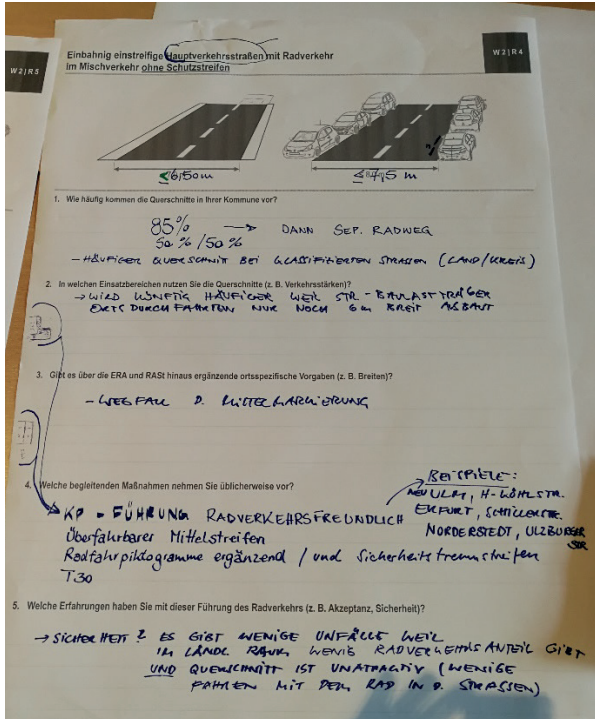 W2|R5
W2|R4
Einbahnig einstreifige Hauptverkehrsstraßen mit Radverkehr
im Mischverkehr ohne Schutzstreifen
≤ 6,50m
≤ 7,5 m
1. Wie häufig kommen die Querschnitte in Ihrer Kommune vor?
85% → DANN SEP. RADWEG
50 % / 50 %
- HÄUFIGER QUERSCHNIT BEI KLASSIFIZIERTEN STRASSEN (LAND/KREIS)
2. In welchen Einsatzbereichen nutzen Sie die Querschnitte (z. B. Verkehrsstärken)?
→ WIRD KÜNFTIG HÄUFIGER WEIL STR-BAULASTTRÄGER
ORTSDURCHFAHRTEN NUR NOCH 6m BREIT AUSBAUT
3. Gibt es über die ERA und RASt hinaus ergänzende ortsspezifische Vorgaben (z. B. Breiten)?
- WEGFALL D. MITTELMARKIERUNG
4. Welche begleitenden Maßnahmen nehmen Sie üblicherweise vor?
BEISPIELE:
NEU ULM,
ERFURT, SCHILLERSTR.
NORDERSTEDT, ULZBURGER
STR
KP - FÜHRUNG RADVERKEHRSFREUNDLICH
Überfahrbarer Mittelstreifen
Radfahrpiktogramme ergänzend / und Sicherheitstrennstreifen
T30
5. Welche Erfahrungen haben Sie mit dieser Führung des Radverkehrs (z. B. Akzeptanz, Sicherheit)?
→ SICHERHEIT? ES GIBT WENIGE UNFÄLLE WEIL
IM LÄNDL. RAUM WENIG RADVERKEHRSANTEIL GIBT
UND QUERSCHNITT IST UNATRAKTIV (WENIGE
FAHREN MIT DEM RAD IN D. STRASSEN)